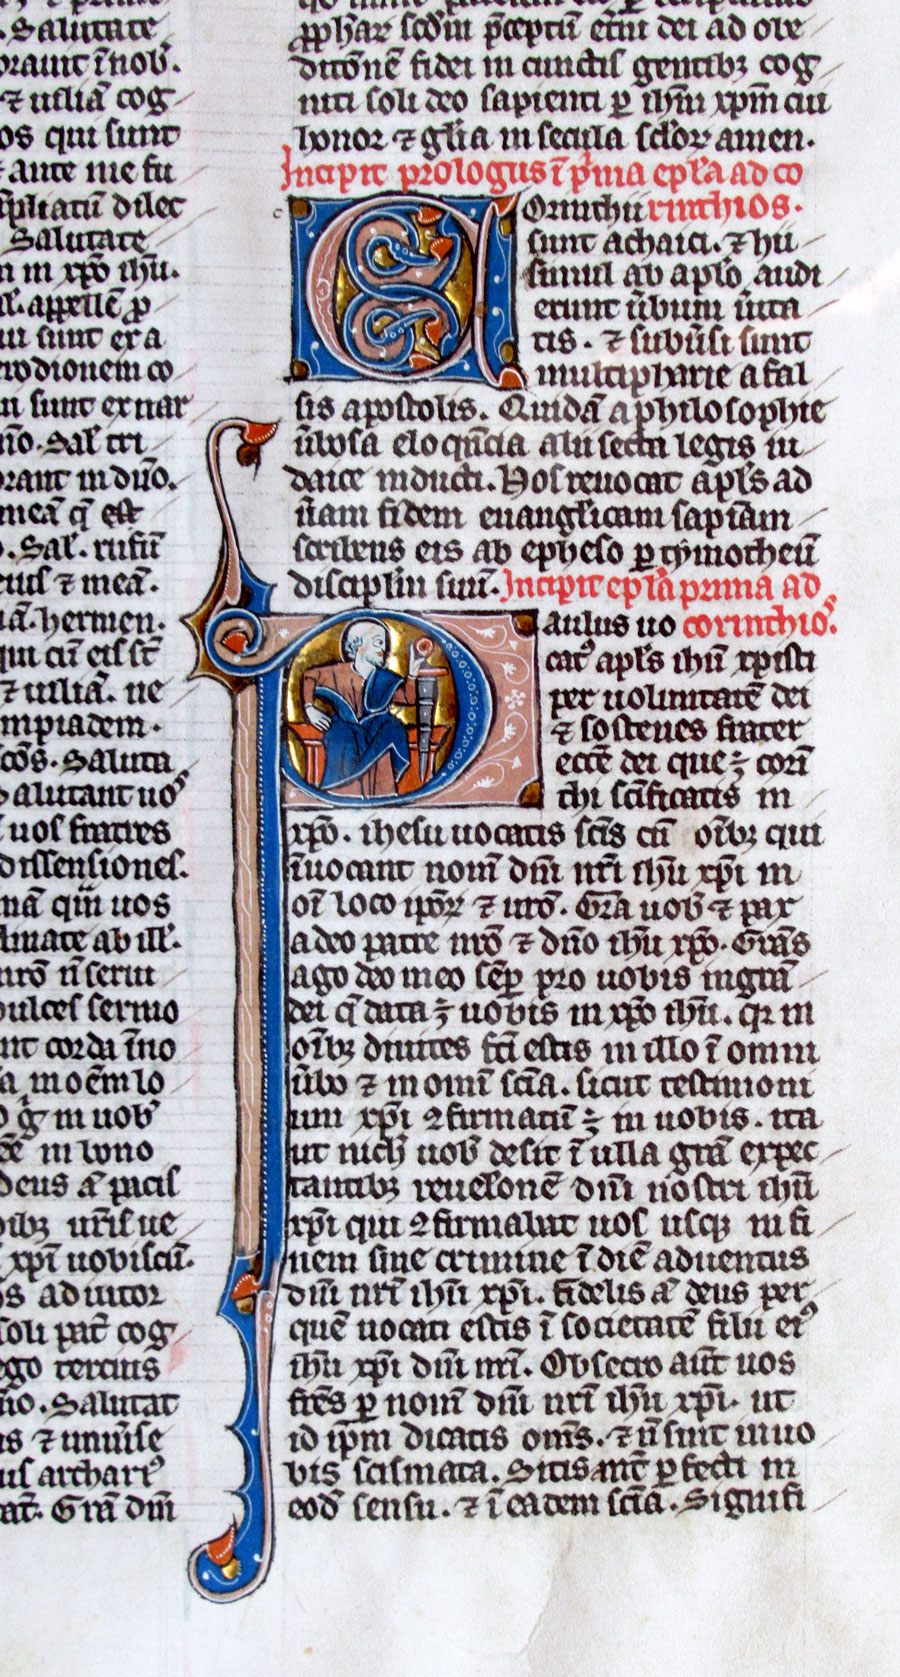 Salutate
orauit ĩ nob̾.
⁊ uɾ̃am cog
os qui sunt
ante me fu
ãpliatũ dilec
Salutate
in xp̃o ih̃u.
appellẽ pro
sunt ex a
rodionem co
sunt ex nar
ñio. Sal̃ tri
orant in dño.
meã q̃ est
Sal̃. rufũ
eius ⁊ meã.
hermen.
qui cũ eis st̃
⁊ ne
impiadem.
scõs. Saluta
Salutant uos
uos fratres
dissensiones
quã uos
clinate ab ill̃.
nr̃o ñ serui
dulces sermo
corda ĩno
in oẽm lo
in uob̾
in bono
deus aũ pacis
uob̾ cog
xp̃i uobiscũ.
adiutor
soli pat̃ cog
ego tercius
dño. Salutat
⁊ uniu̾se
archari⁹
Grã dñi
ꝓphaꝝ scdm p̃ceptũ et̃ni dei ad obe
ditõnẽ fidei in cunctis gentibꝫ cog
niti soli deo sapienti ꝑ ih̃m xp̃m cui
honor ⁊ gl̃ia in secula sc̃loꝝ amen.
Incipit prologus ĩ p̃ma epl̃a ad co
rinthios.
Orinthii
sunt achaici. ⁊ hii
simil ab apl̃o audi
erunt ũbum ũita
tis. ⁊ subũsi sunt
multipharie a fal
sis apostolis. Quidã a philosophie
ũbosa eloquẽcia alii secta legis iu
daice inducti. Hos reuocat apl̃s ad
ũam fidem euangl̃icam sapiãm
scribens eis ab epheso ꝑ tymotheũ
discipl̃m suũ. Incipit epl̃a prima ad
corinthios.
Paulus uo
cat⁹ apl̃s ih̃u xpisti
per uoluntatẽ dei
⁊ sostenes frater
ecc̃e dei que ÷ cori
thi sc̃ificatis in
xp̃o. ihesu uocatis sc̃is cũ om̃ibꝫ qui
ĩuocant nom̃ dñi nr̃i ih̃u xp̃i in
om̃i loco ip̃oꝝ ⁊ nr̃o. Gr̃a uob̾ ⁊ pax
a deo patre nr̃o ⁊ dño ih̃u xp̃o. Gr̃as
ago deo meo sẽp pro uobis in gr̃am
dei q̃ data ÷ uobis in xp̃o ih̃u. qꝛ in
om̃ibꝫ diuites fc̃i estis in illo ĩ omni
ũbo ⁊ in omni sc̃ia. sicut testimoni
um xp̃i ꝯfirmatũ ÷ in uobis. ita
ut nich̃ uob̾ desit ĩ ulla gr̃a expec
tantibꝫ reuelõnẽ dñi nostri ih̃u
xp̃i qui ꝯfirmabit uos usqꝫ in fi
nem sine crimine ĩ die aduentus
dñi nr̃i ih̃u xp̃i. fidelis aũ deus per
quẽ uocati estis ĩ societatẽ filii ei⁹
ih̃u xp̃i dñi nr̃i. Obsecro aũt uos
fr̃es ꝑ nom̃ dñi nr̃i ih̃u xp̃i. ut
id ip̃m dicatis om̃s. ⁊ ñ sint in uo
bis scismata. Sitis aũt ꝑfecti in
eod̃ sensu. ⁊ ĩ eadem sc̃ia. Signifi